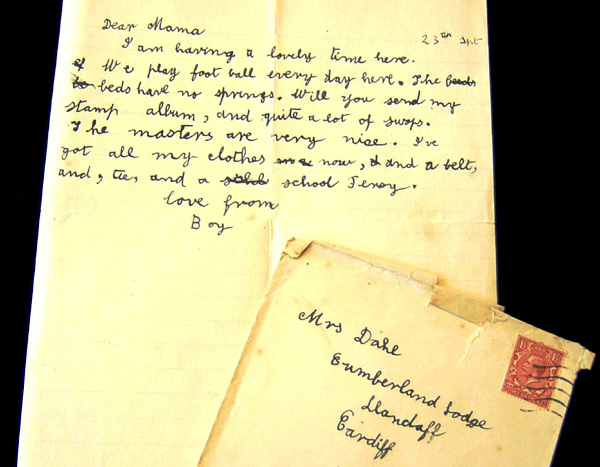 Dear Mama
23rth Sept
I am having a lovely time here.
We play foot ball every day here. The beds
beds have no springs. Will you send my
stamp album, and quite a lot of swops.
The masters are very nice. I've
got all my clothes now, and a belt,
and, tie, and a school Jersy.
love from
Boy
Mrs Dahl
Cumberland Lodge
Llandaff
Cardiff